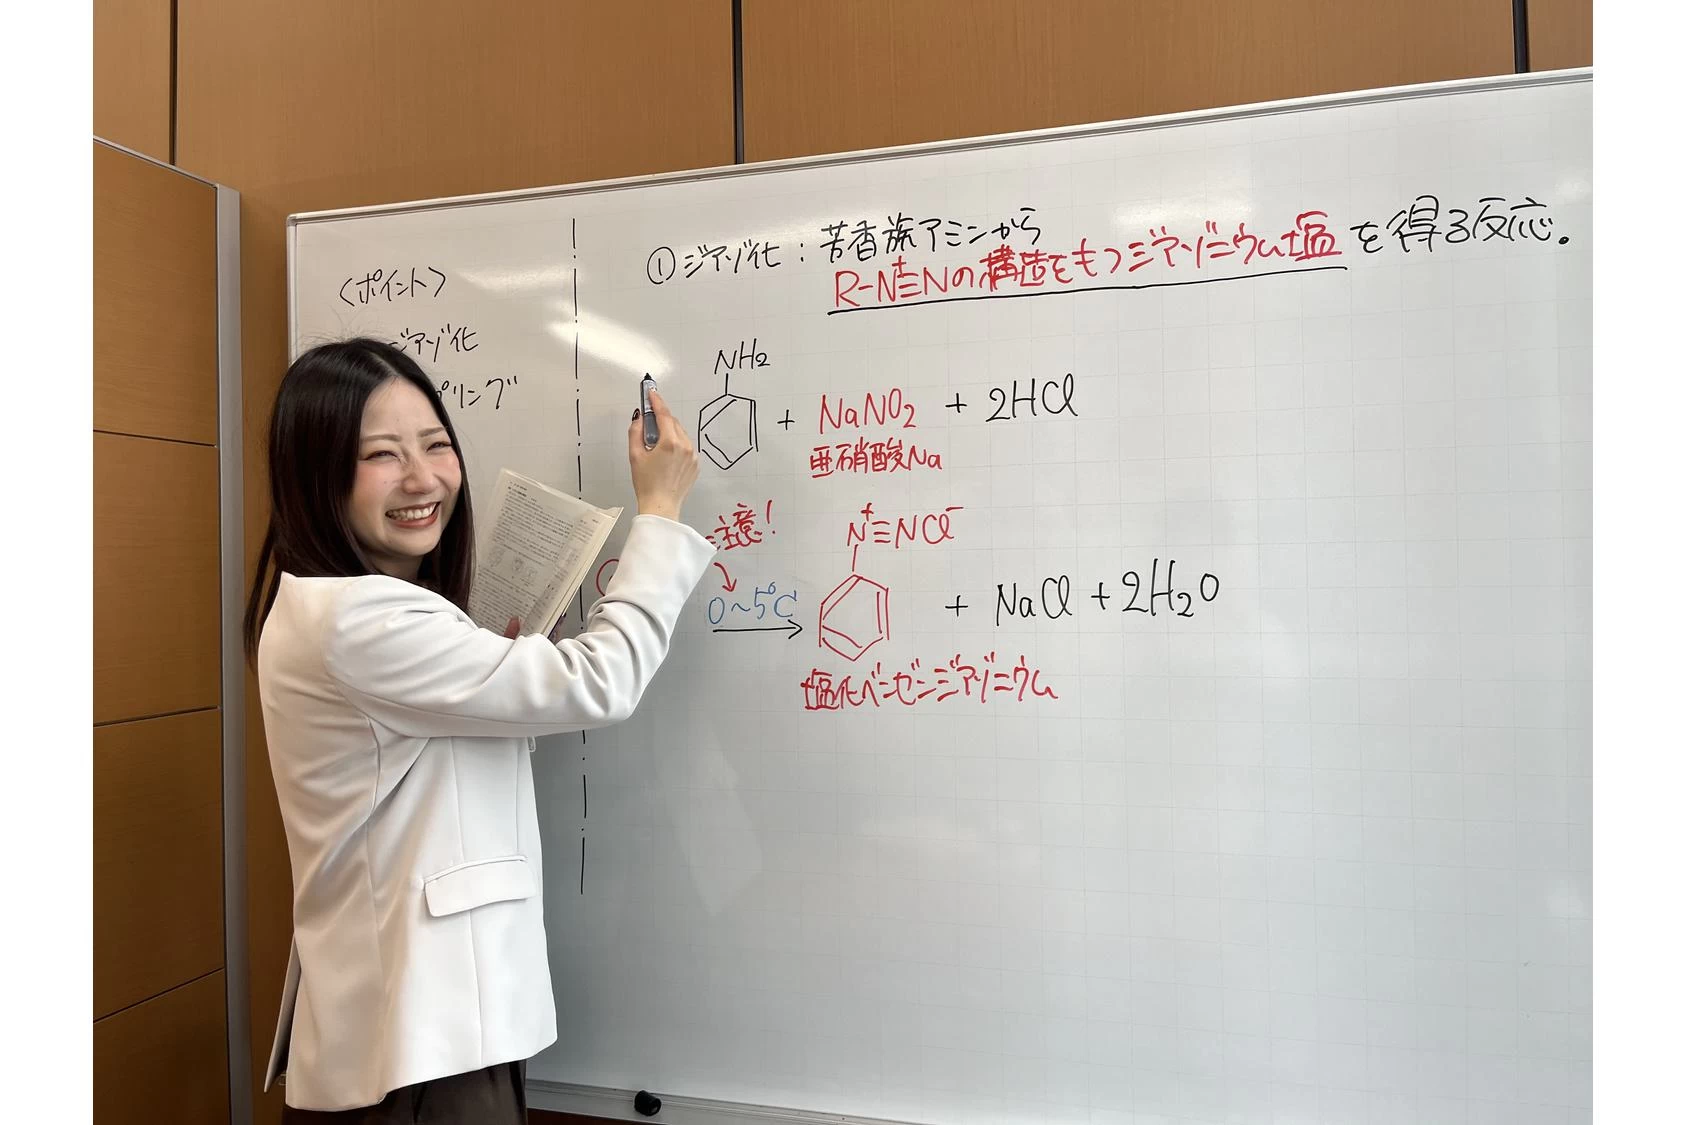 〈ポイント〉
ジアゾ化
プリング
① ジアゾ化：芳香族アミンから
R-N⁺≡Nの構造をもつジアゾニウム塩を得る反応。
NH₂
+ NaNO₂ + 2HCl
亜硝酸Na
注意!
0~5℃
N⁺≡NCl⁻
+ NaCl + 2H₂O
塩化ベンゼンジアゾニウム